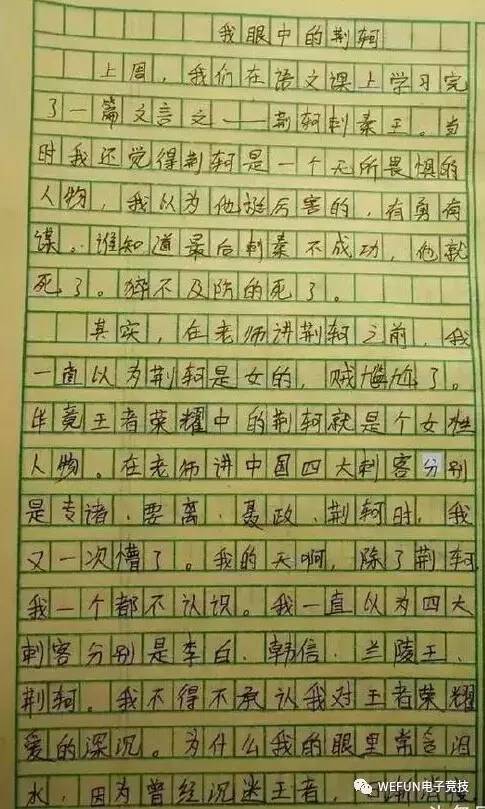 我眼中的荆轲
上周，我们在语文课上学习完
了一篇文言之——荆轲刺秦王。当
时我还觉得荆轲是一个无所畏惧的
人物，我以为他挺厉害的，有勇有
谋。谁知道最后刺秦不成功，他就
死了。猝不及防的死了。
其实，在老师讲荆轲之前，我
一直以为荆轲是女的，贼尴尬了。
毕竟王者荣耀中的荆轲就是个女性
人物。在老师讲中国四大刺客分别
是专诸、要离、聂政、荆轲时，我
又一次懵了。我的天啊，除了荆轲，
我一个都不认识。我一直以为四大
刺客分别是李白、韩信、兰陵王、
荆轲。我不得不承认我对王者荣耀
爱的深沉。为什么我的眼里常含泪
水，因为曾经沉迷王者，
WEFUN电子竞技